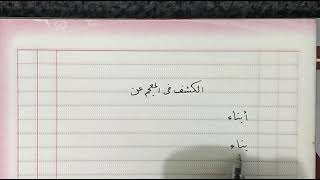 الكشف فى المعجم عن
أبناء
بناء